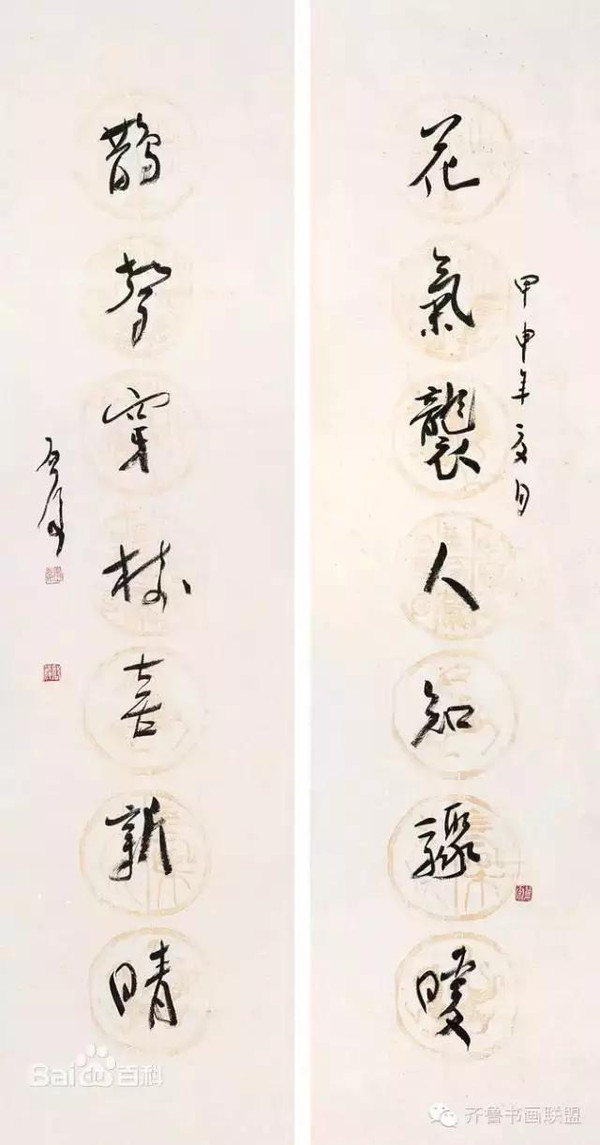 花氣襲人知驟暖
甲申年夏月
鵲聲穿樹喜新晴
Bai百科
齐鲁书画联盟